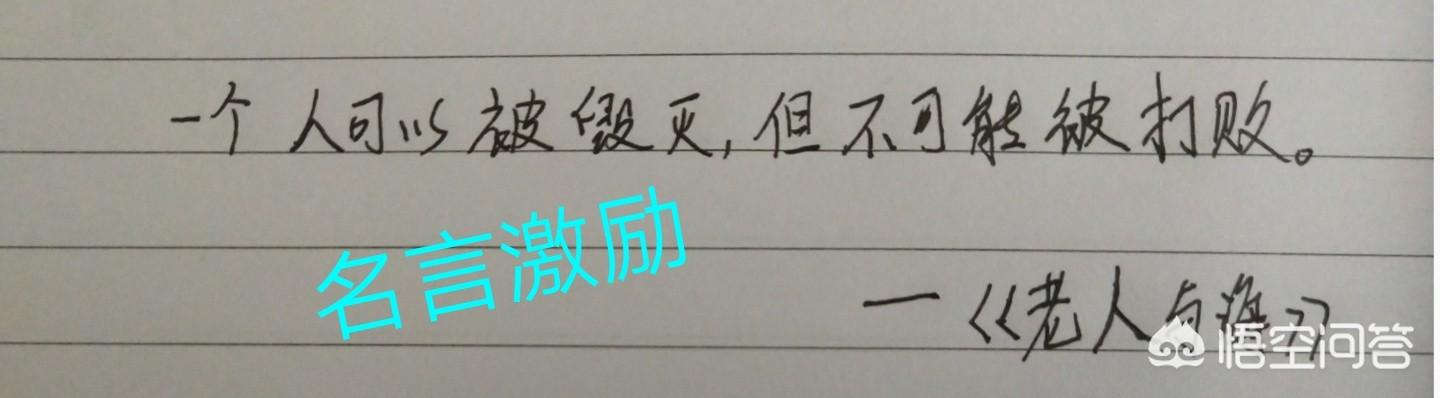 一个人可以被毁灭,但不可能被打败。
名言激励
—《老人与海》
悟空问答